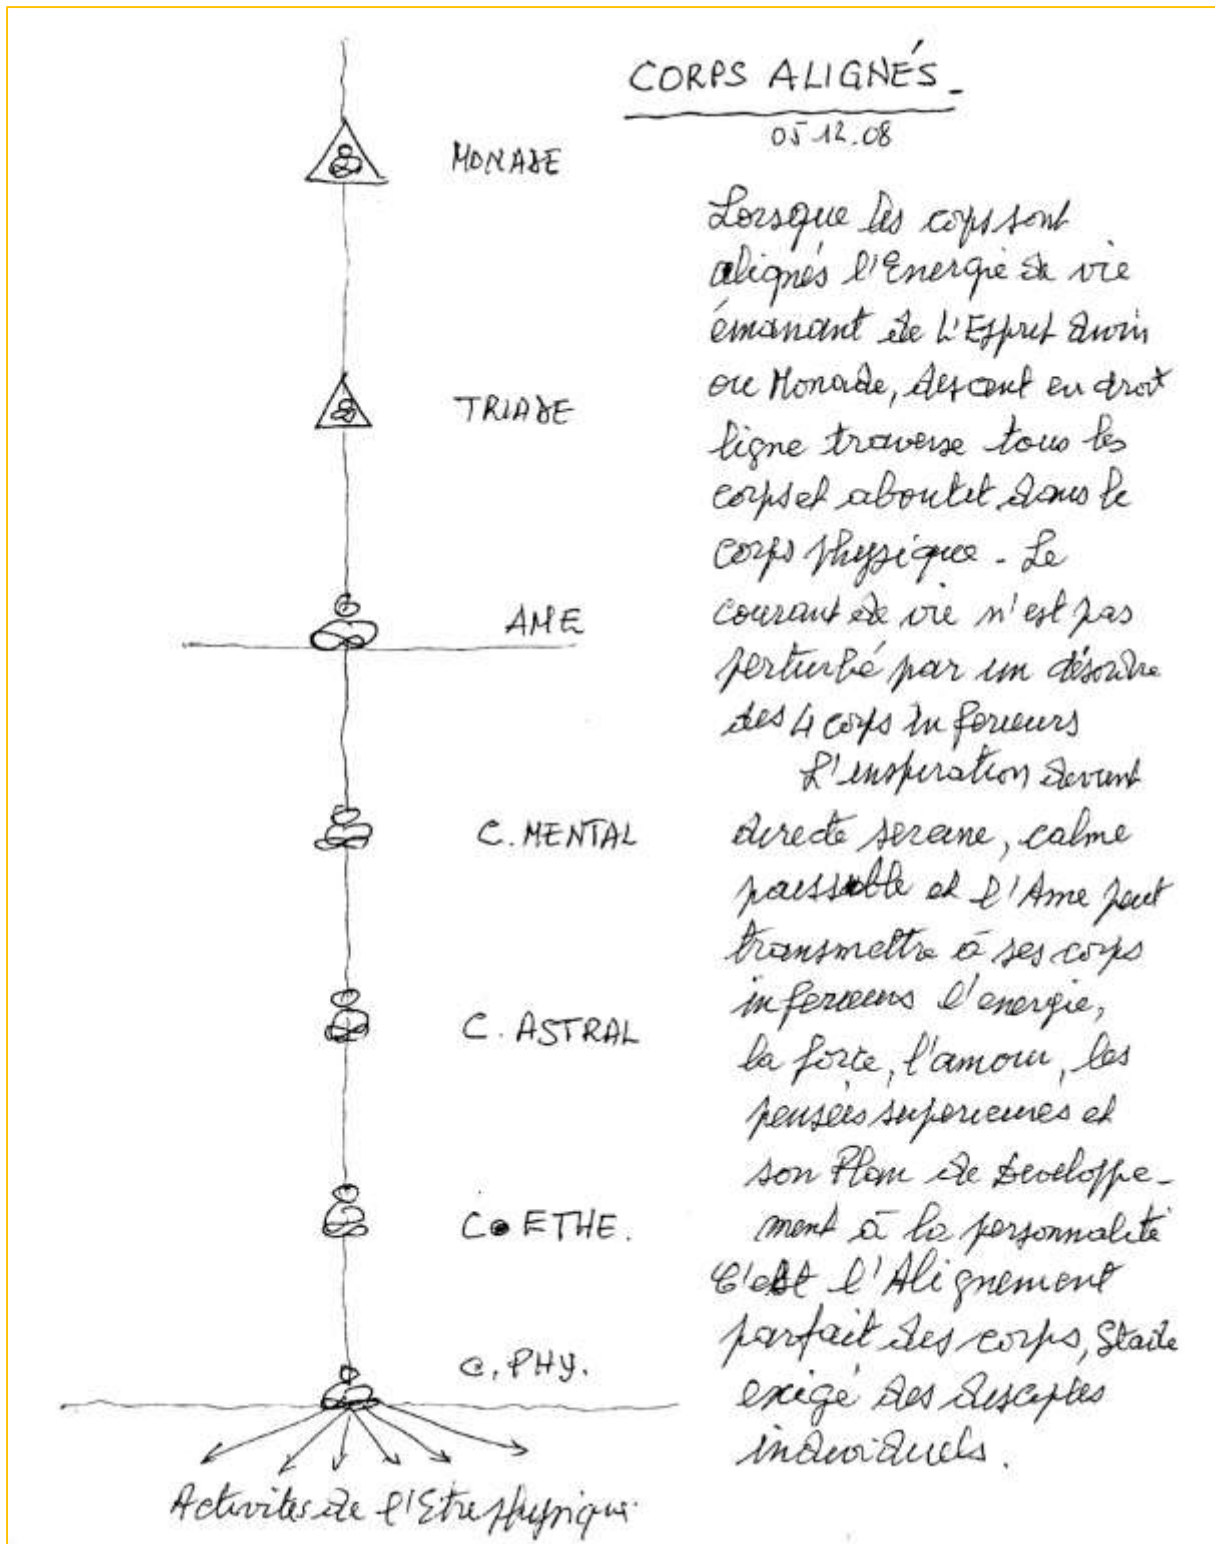 CORPS ALIGNÉS_
05.12.08
MONADE
TRIADE
AME
C. MENTAL
C. ASTRAL
C. ETHE.
C. PHY.
Activites de l'Etre physique.
Lorsque les corps sont
alignés l'Energie de vie
émanant de L'Esprit Divin
ou Monade, descent en droit
ligne traverse tous les
corps et aboutit dans le
corps physique - Le
courant de vie n'est pas
perturbé par un désordre
des 4 corps inferieurs
L'inspiration devient
directe sereine, calme
paissible et l'Ame peut
transmettre à ses corps
inferieurs l'energie,
la force, l'amour, les
pensées superieures et
son Plan de Developpe-
ment à la personnalité
C'est l'Alignement
parfait des corps, Stade
exigé des disciples
individuels.